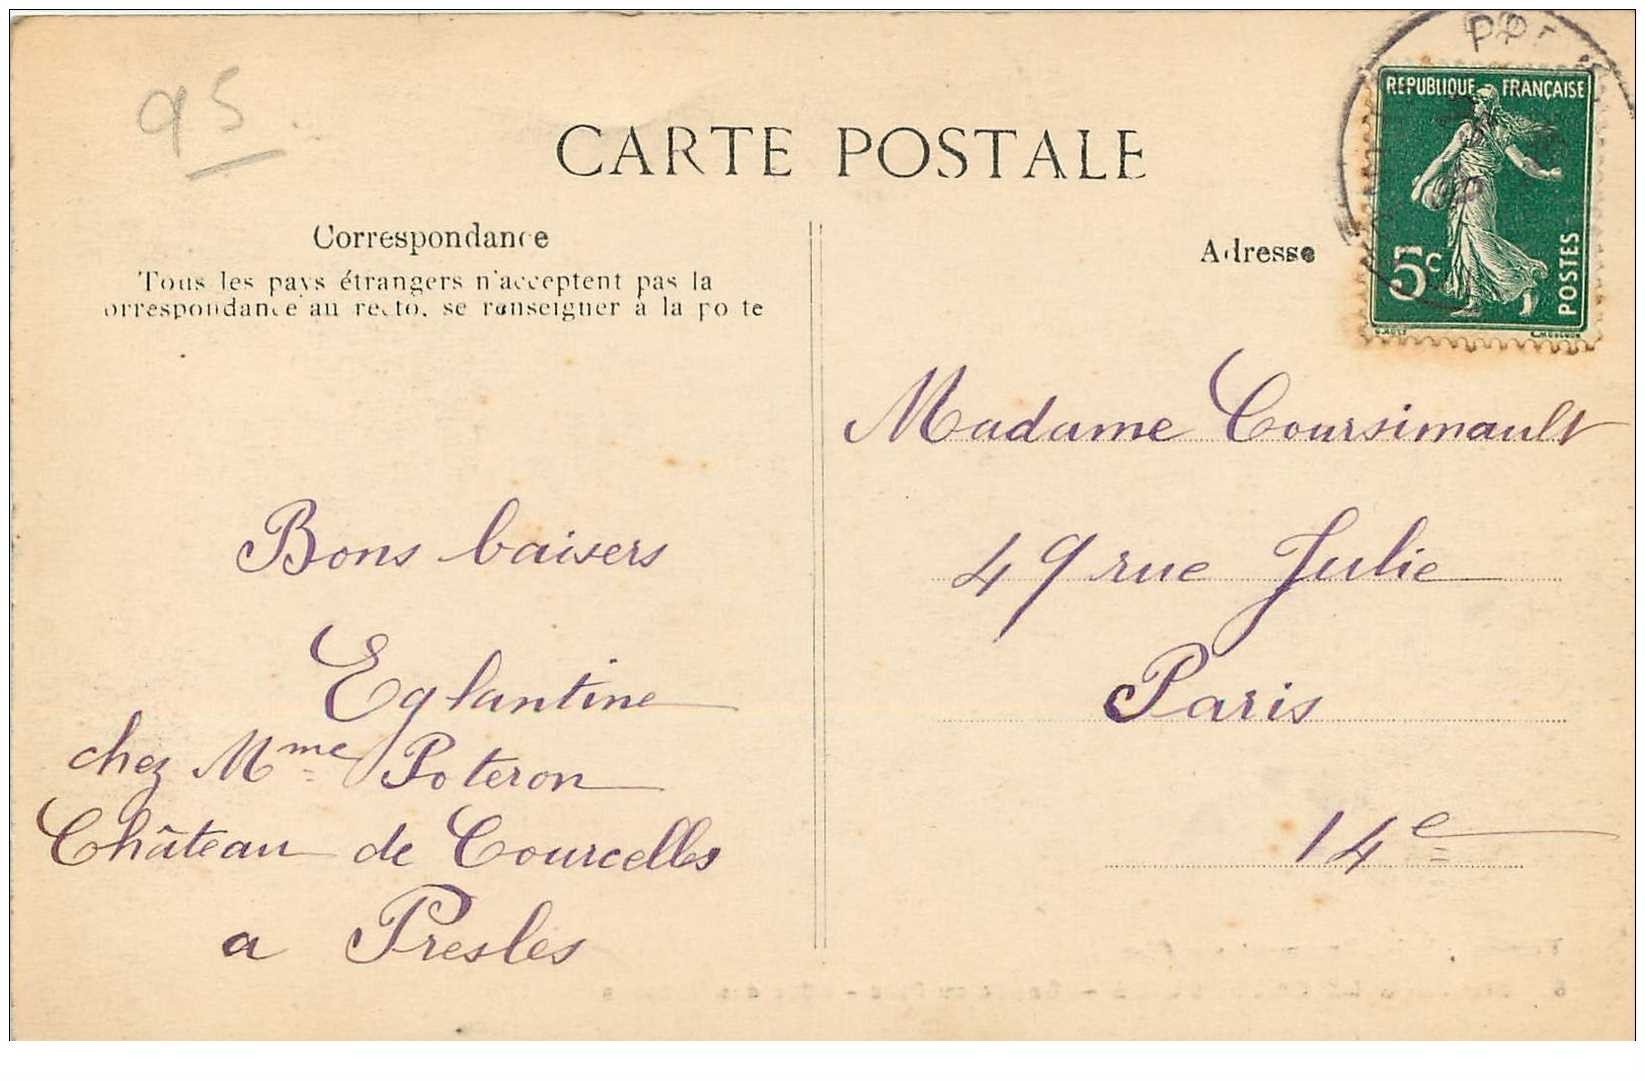 95
CARTE POSTALE
Correspondance
Tous les pays étrangers n'acceptent pas la
correspondance au recto, se renseigner à la poste
Bons baisers
Eglantine
chez Mme Poteron
Château de Courcelles
a Presles
Adresse
REPUBLIQUE FRANÇAISE
5c
POSTES
Madame Coursimault
49 rue Julie
Paris
14e